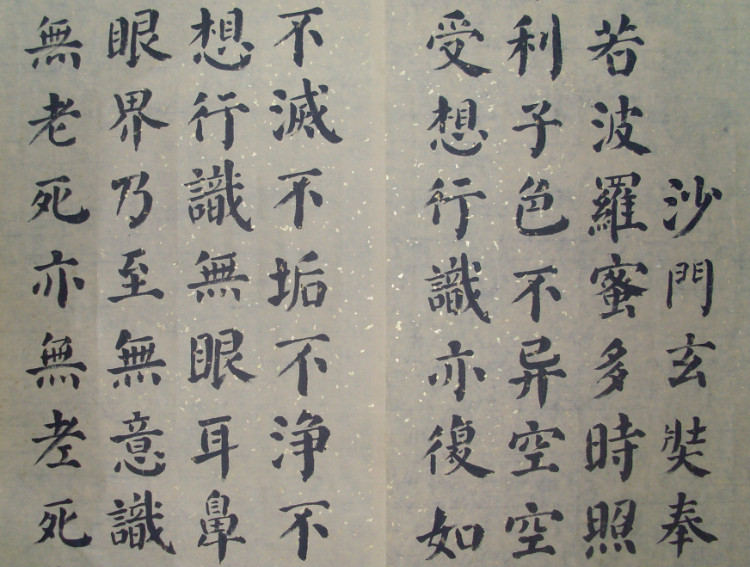 沙門玄奘奉
若波羅蜜多時照
利子色不异空空
受想行識亦復如
不滅不垢不浄不
想行識無眼耳鼻
眼界乃至無意識
無老死亦無老死